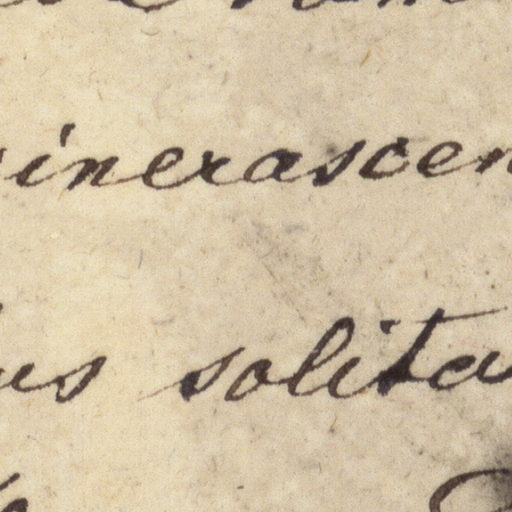 inerascen
us solita